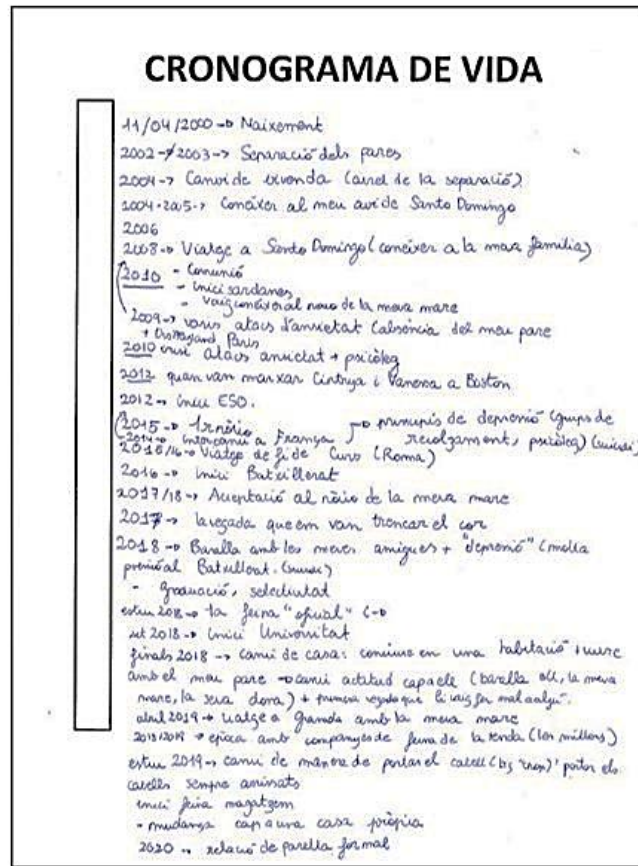 CRONOGRAMA DE VIDA
11/04/2000 → Naixement
2002-2003 → Separació dels pares
2004 → Canvi de vivenda (arrel de la separació)
2004-2005 → Conèixer al meu avi de Santo Domingo
2006
2008 → Viatge a Santo Domingo (conèixer a la meva família)
2010 - Comunió
- Inici sardanes
- vaig conèixer al novio de la meva mare
2009 → varis atacs d'ansietat (absència del meu pare
+ Disneyland Paris
2010 atacs ansietat + psicòleg
2012 quan van marxar Cintya i Vanessa a Boston
2012 → inici ESO.
2015 → → principis de depressió (grups de
2014 → intercanvi a França recolzament, psicòleg) (suïcidi)
2015/16 → Viatge de fi de Curs (Roma)
2016 → Inici Batxillerat
2017/18 → Acceptació al nòvio de la meva mare
2017 → 1a vegada que em van trencar el cor
2018 → Baralla amb les meves amigues + "depressió" (molta
pressió al Batxillerat. (suïcidi)
- Graduació, selectivitat
estiu 2018 → 1a feina "oficial"
set 2018 → Inici Universitat
finals 2018 → canvi de casa: conviure en una habitació + viure
amb el meu pare → canvi actitud cap a ell (baralla ell, la meva
mare, la seva dona) + primera vegada que li vaig fer mal a algú.
abril 2019 → viatge a Granada amb la meva mare
2018/2019 → època amb companyes de feina de la tenda (les millors)
estiu 2019 → canvi de manera de portar el cabell portar els
cabells sempre arrissats
inici feina magatzem
- mudança cap a una casa pròpia
2020 → relació de parella formal